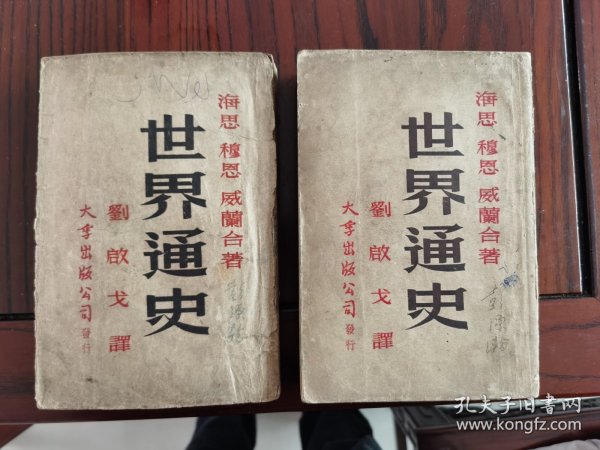 海思 穆恩 威蘭合著
世界通史
劉啟戈譯
大孚出版公司發行
海思 穆恩 威蘭合著
世界通史
劉啟戈譯
大孚出版公司發行
孔夫子旧书网
www.kongfz.com